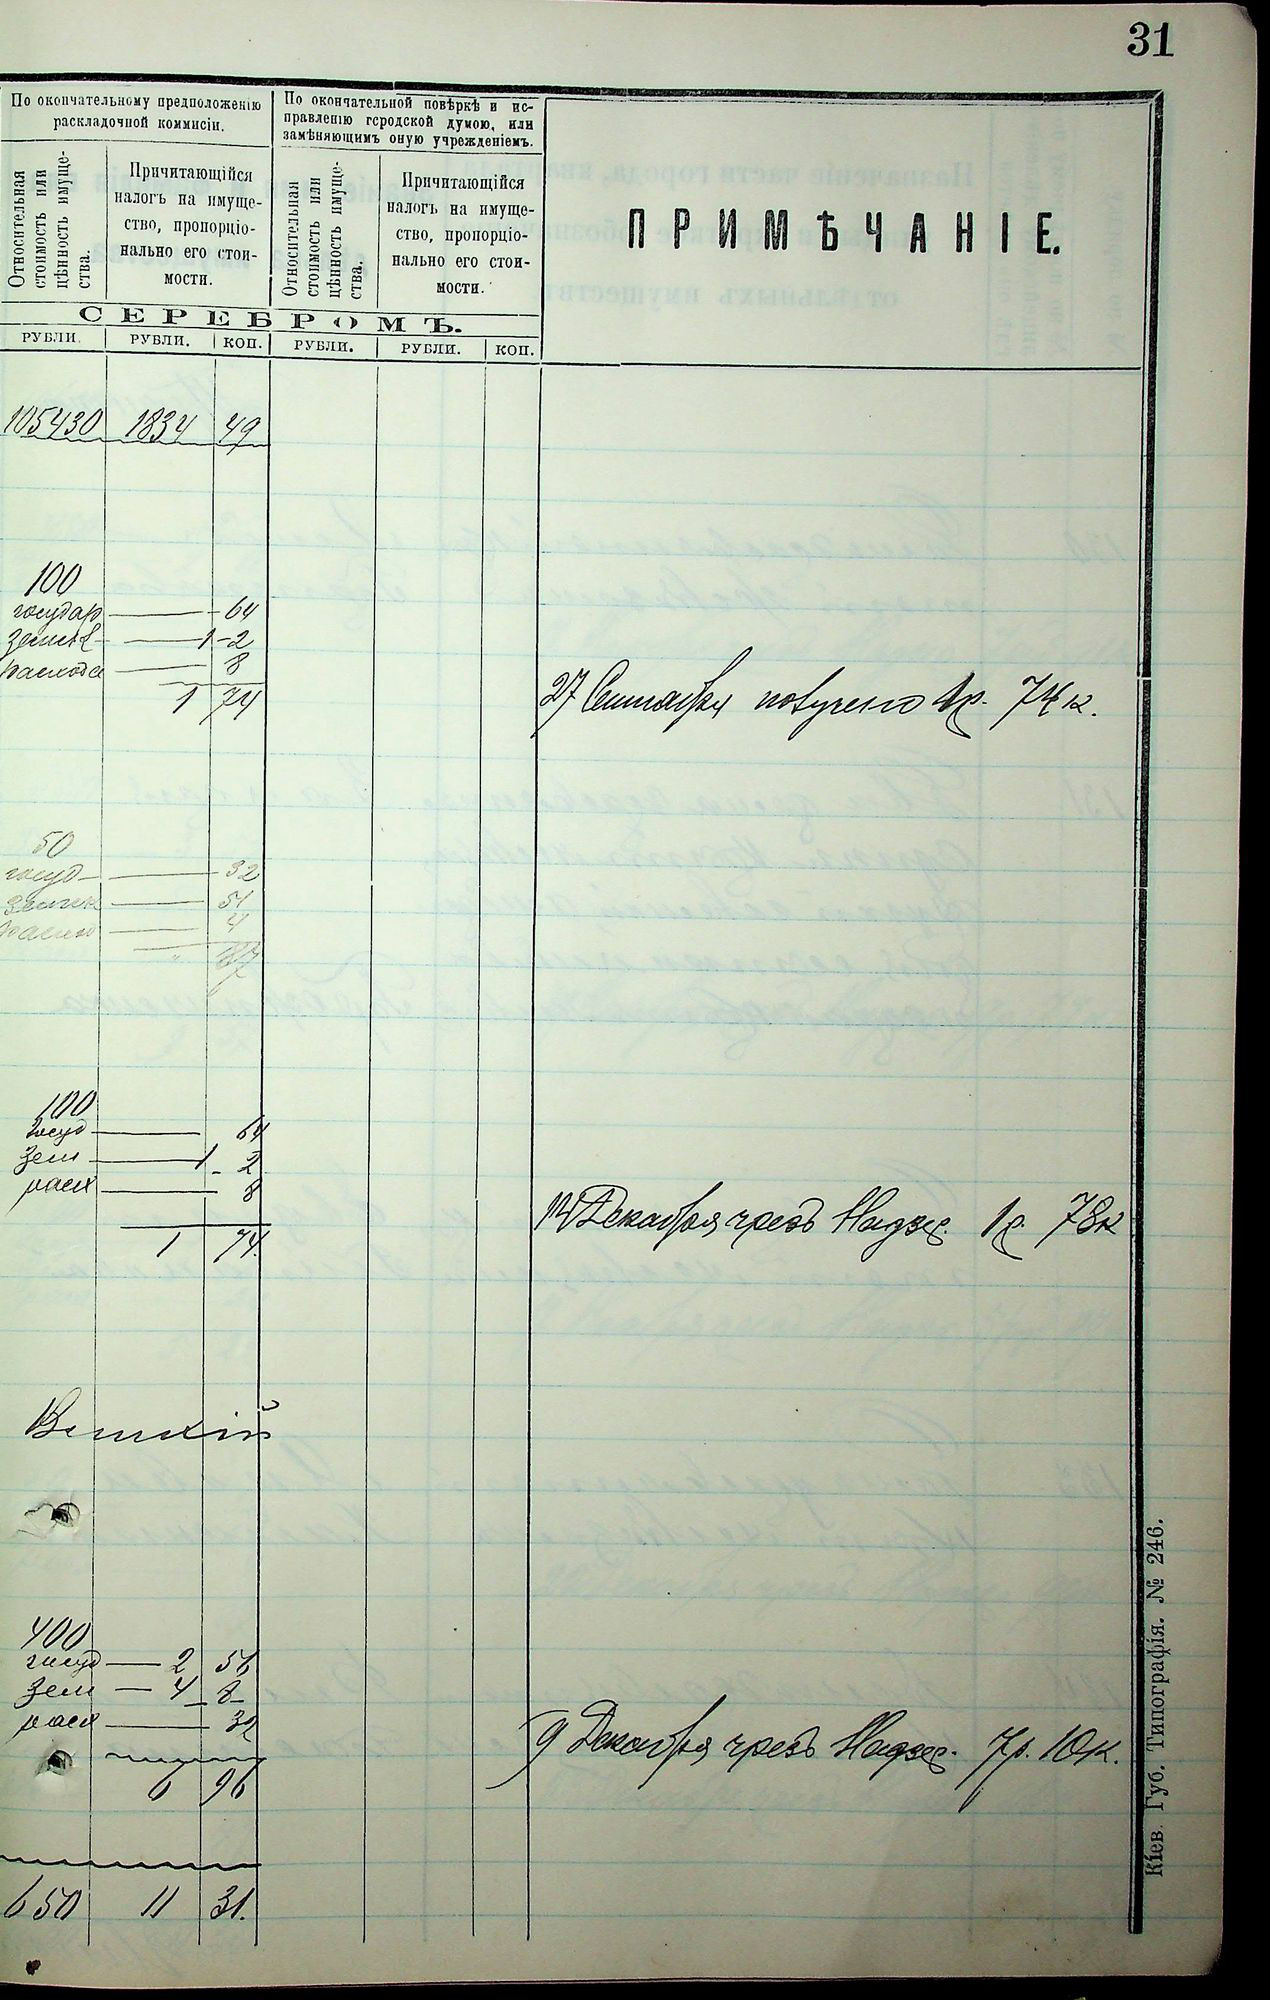 31
По окончательному предположенію
раскладочной коммисіи.
По окончательной повѣркѣ и ис-
правленію городской думою, или
замѣняющимъ оную учрежденіемъ.
Относительная
стоимость или
цѣнность имуще-
ства.
Причитающійся
налогъ на имуще-
ство, пропорціо-
нально его стои-
мости.
Относительная
стоимость или
цѣнность имуще-
ства.
Причитающійся
налогъ на имуще-
ство, пропорціо-
нально его стои-
мости.
ПРИМѢЧАНІЕ.
СЕРЕБРОМЪ.
РУБЛИ. РУБЛИ. КОП. РУБЛИ. РУБЛИ. КОП.
105430 1834 49
100
государ — 64
земск — 1 - 2
расхода — 8
1 74
27 Сентября получено 1р. 74 к.
50
госуд — 32
земск — 51
4
" 87
100
госуд — 64
зем — 1 - 2
расх — 8
1 74.
Декабря чрезъ Надзер. 1р. 78к
400
госуд — 2 56
зем — 4 - 8 -
расх — 32
6 96
9 Декабря чрезъ Надзер. 7р. 10к.
650 11 31.
Кіев. Губ. Типографія. № 246.